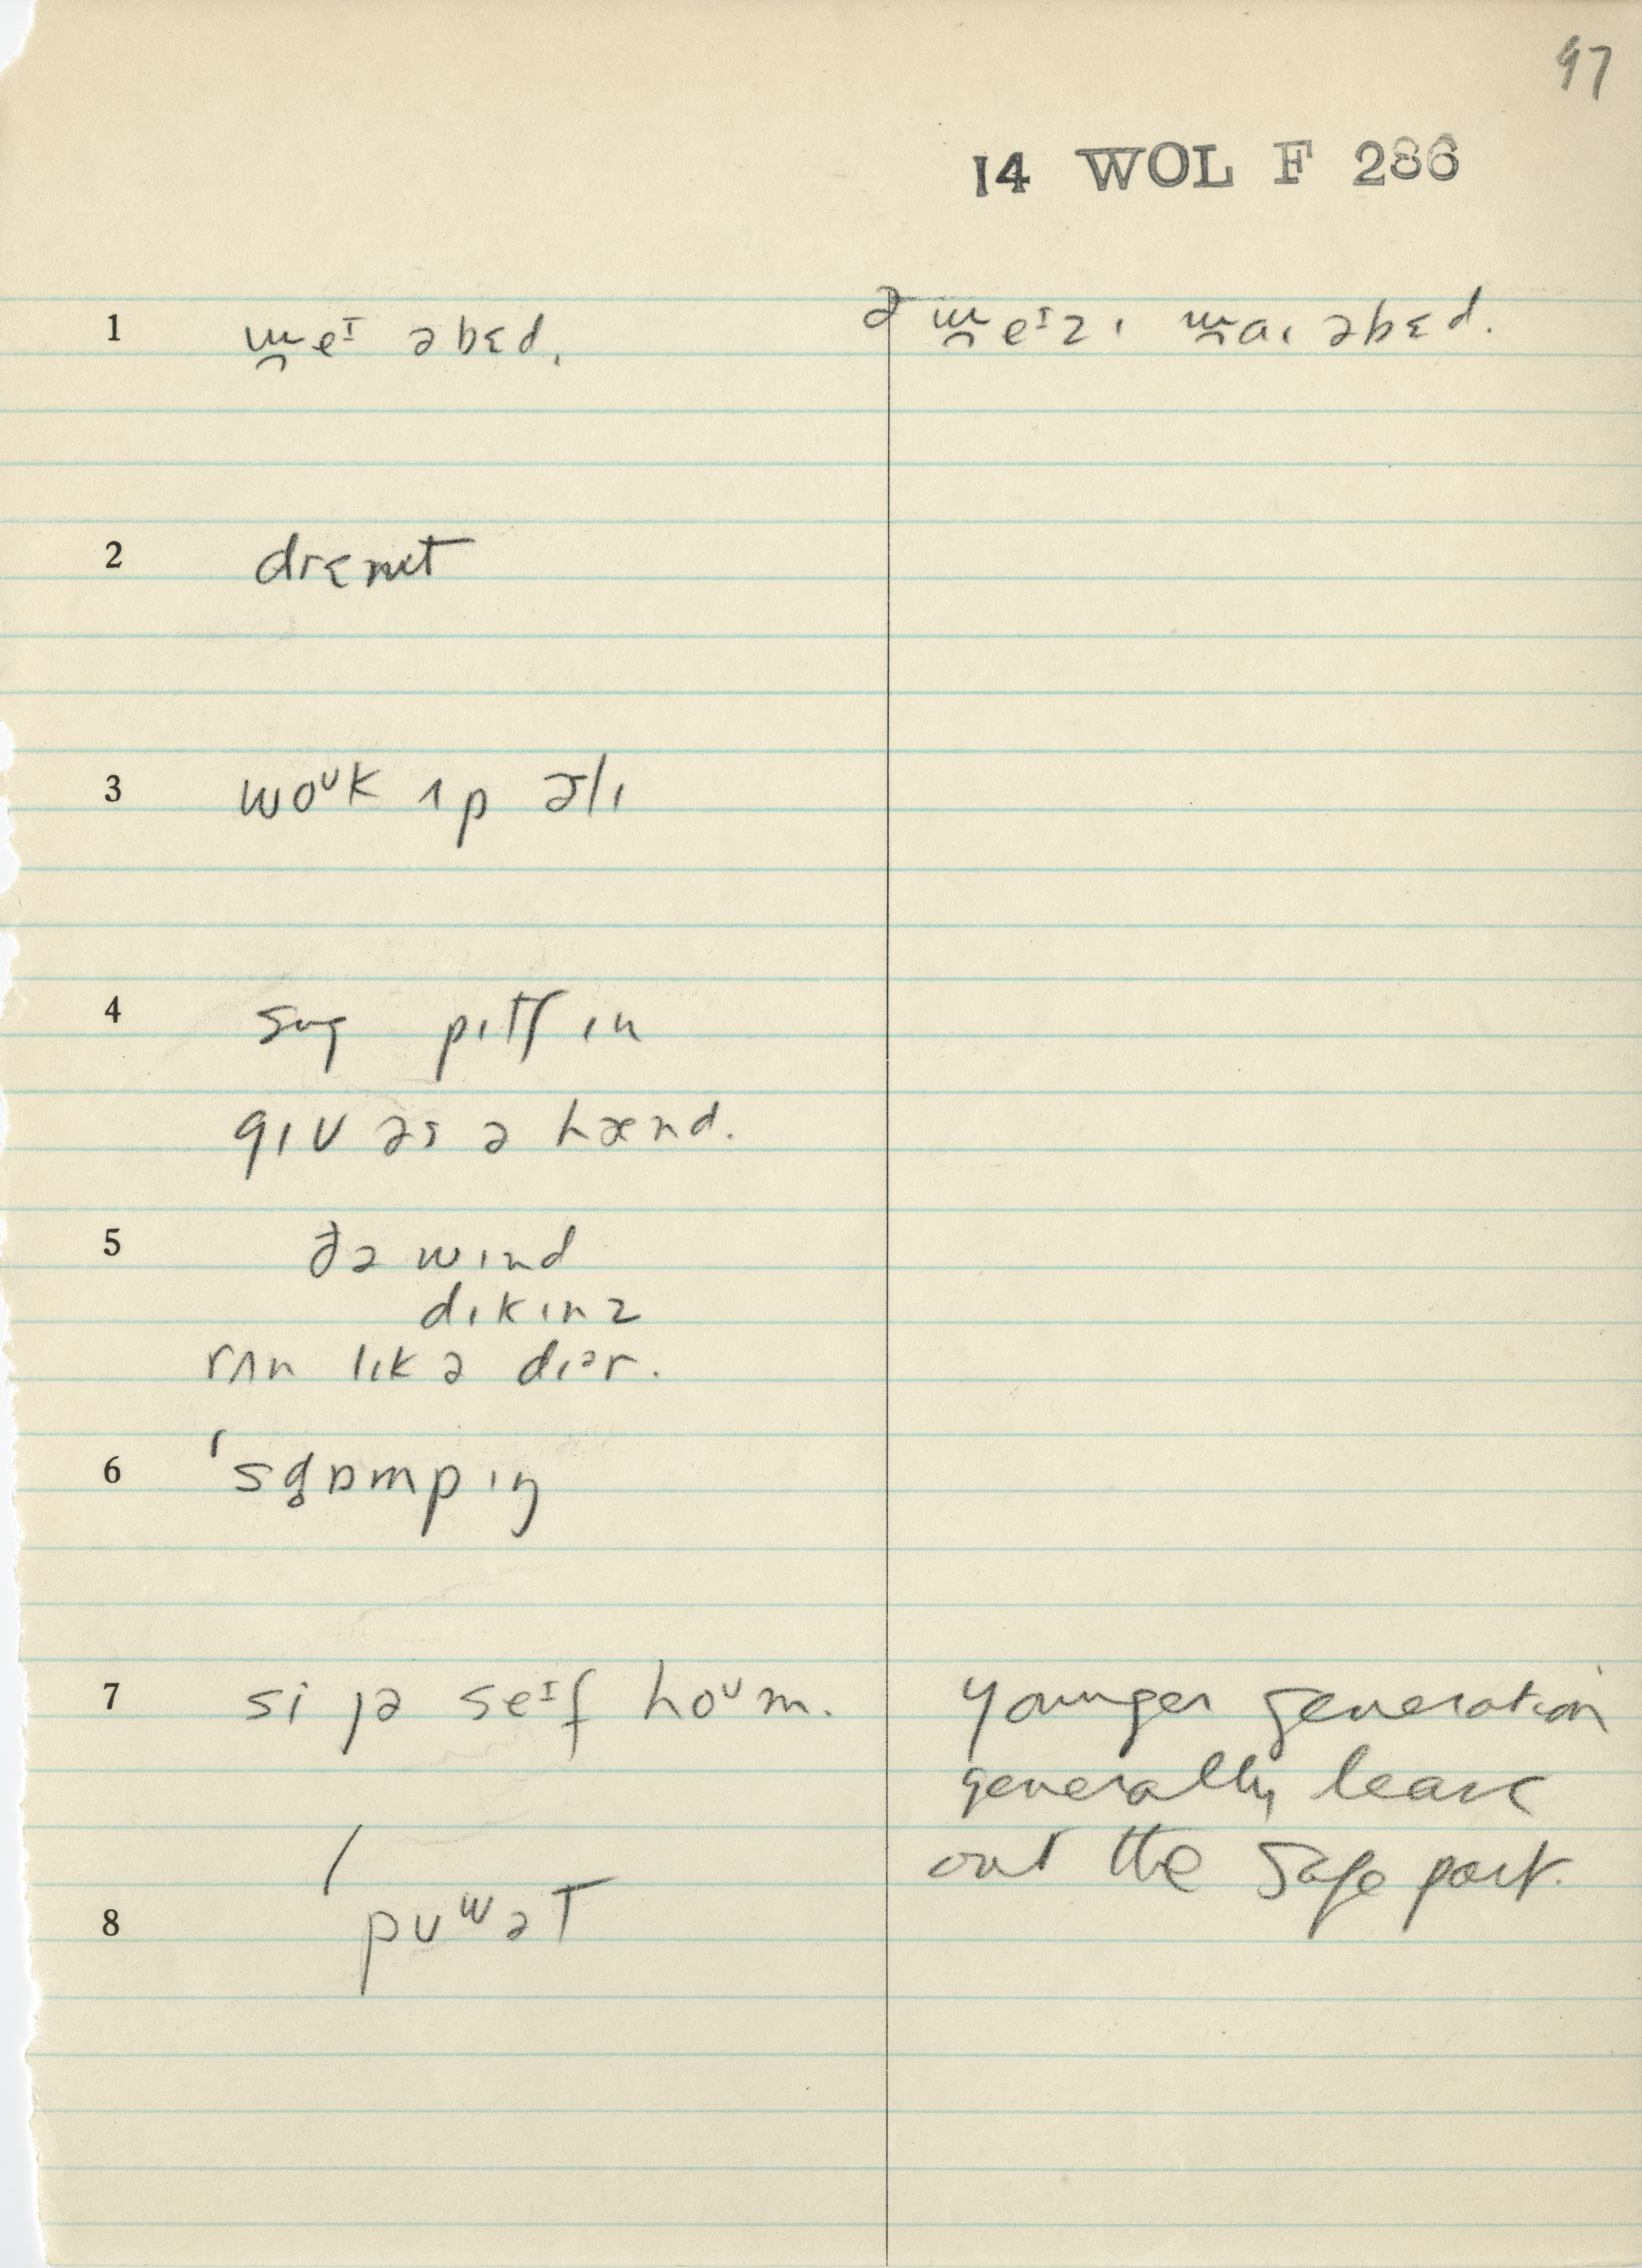 97
14 WOL F 286
1 m̯eᴵ əbɛd. ə m̯eᴵzɪ m̯aɪ əbɛd.
2 drɛmt
3 woᴜk ʌp ɚlɪ
4 pɪtʃ ɪn
gɪv əs ə hænd.
5 ðə wɪnd
dɪkɪnz
rʌn lɪk ə dɪᵊr.
6 'sg̥ɒmpɪŋ
7 si jə seᴵf hoᴜm. younger generation
generally leave
out the safe part.
8 'pᴜʷət